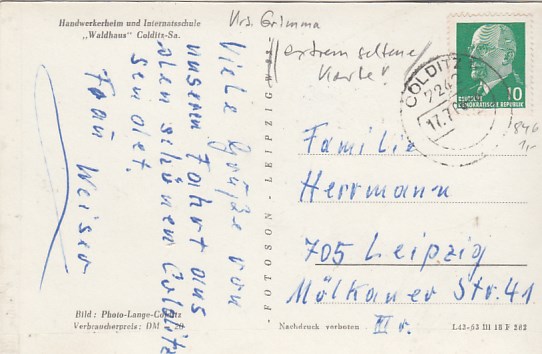 Handwerkerheim und Internatsschule
„Waldhaus" Colditz-Sa.
Krs. Grimma
extrem seltene
Karte!
Viele Grüße von
unserer Fahrt aus
dem schönen Colditz
sendet.
Frau Weiser
FOTOSON - LEIPZIG W 33
COLDITZ
7242
17.7
10
DEUTSCHE
DEMOKRATISCHE REPUBLIK
Familie
Herrmann
705 Leipzig
Mölkauer Str. 41
III r.
Bild: Photo-Lange-Colditz
Verbraucherpreis: DM -.20
Nachdruck verboten
L42-63 III 18 F 262